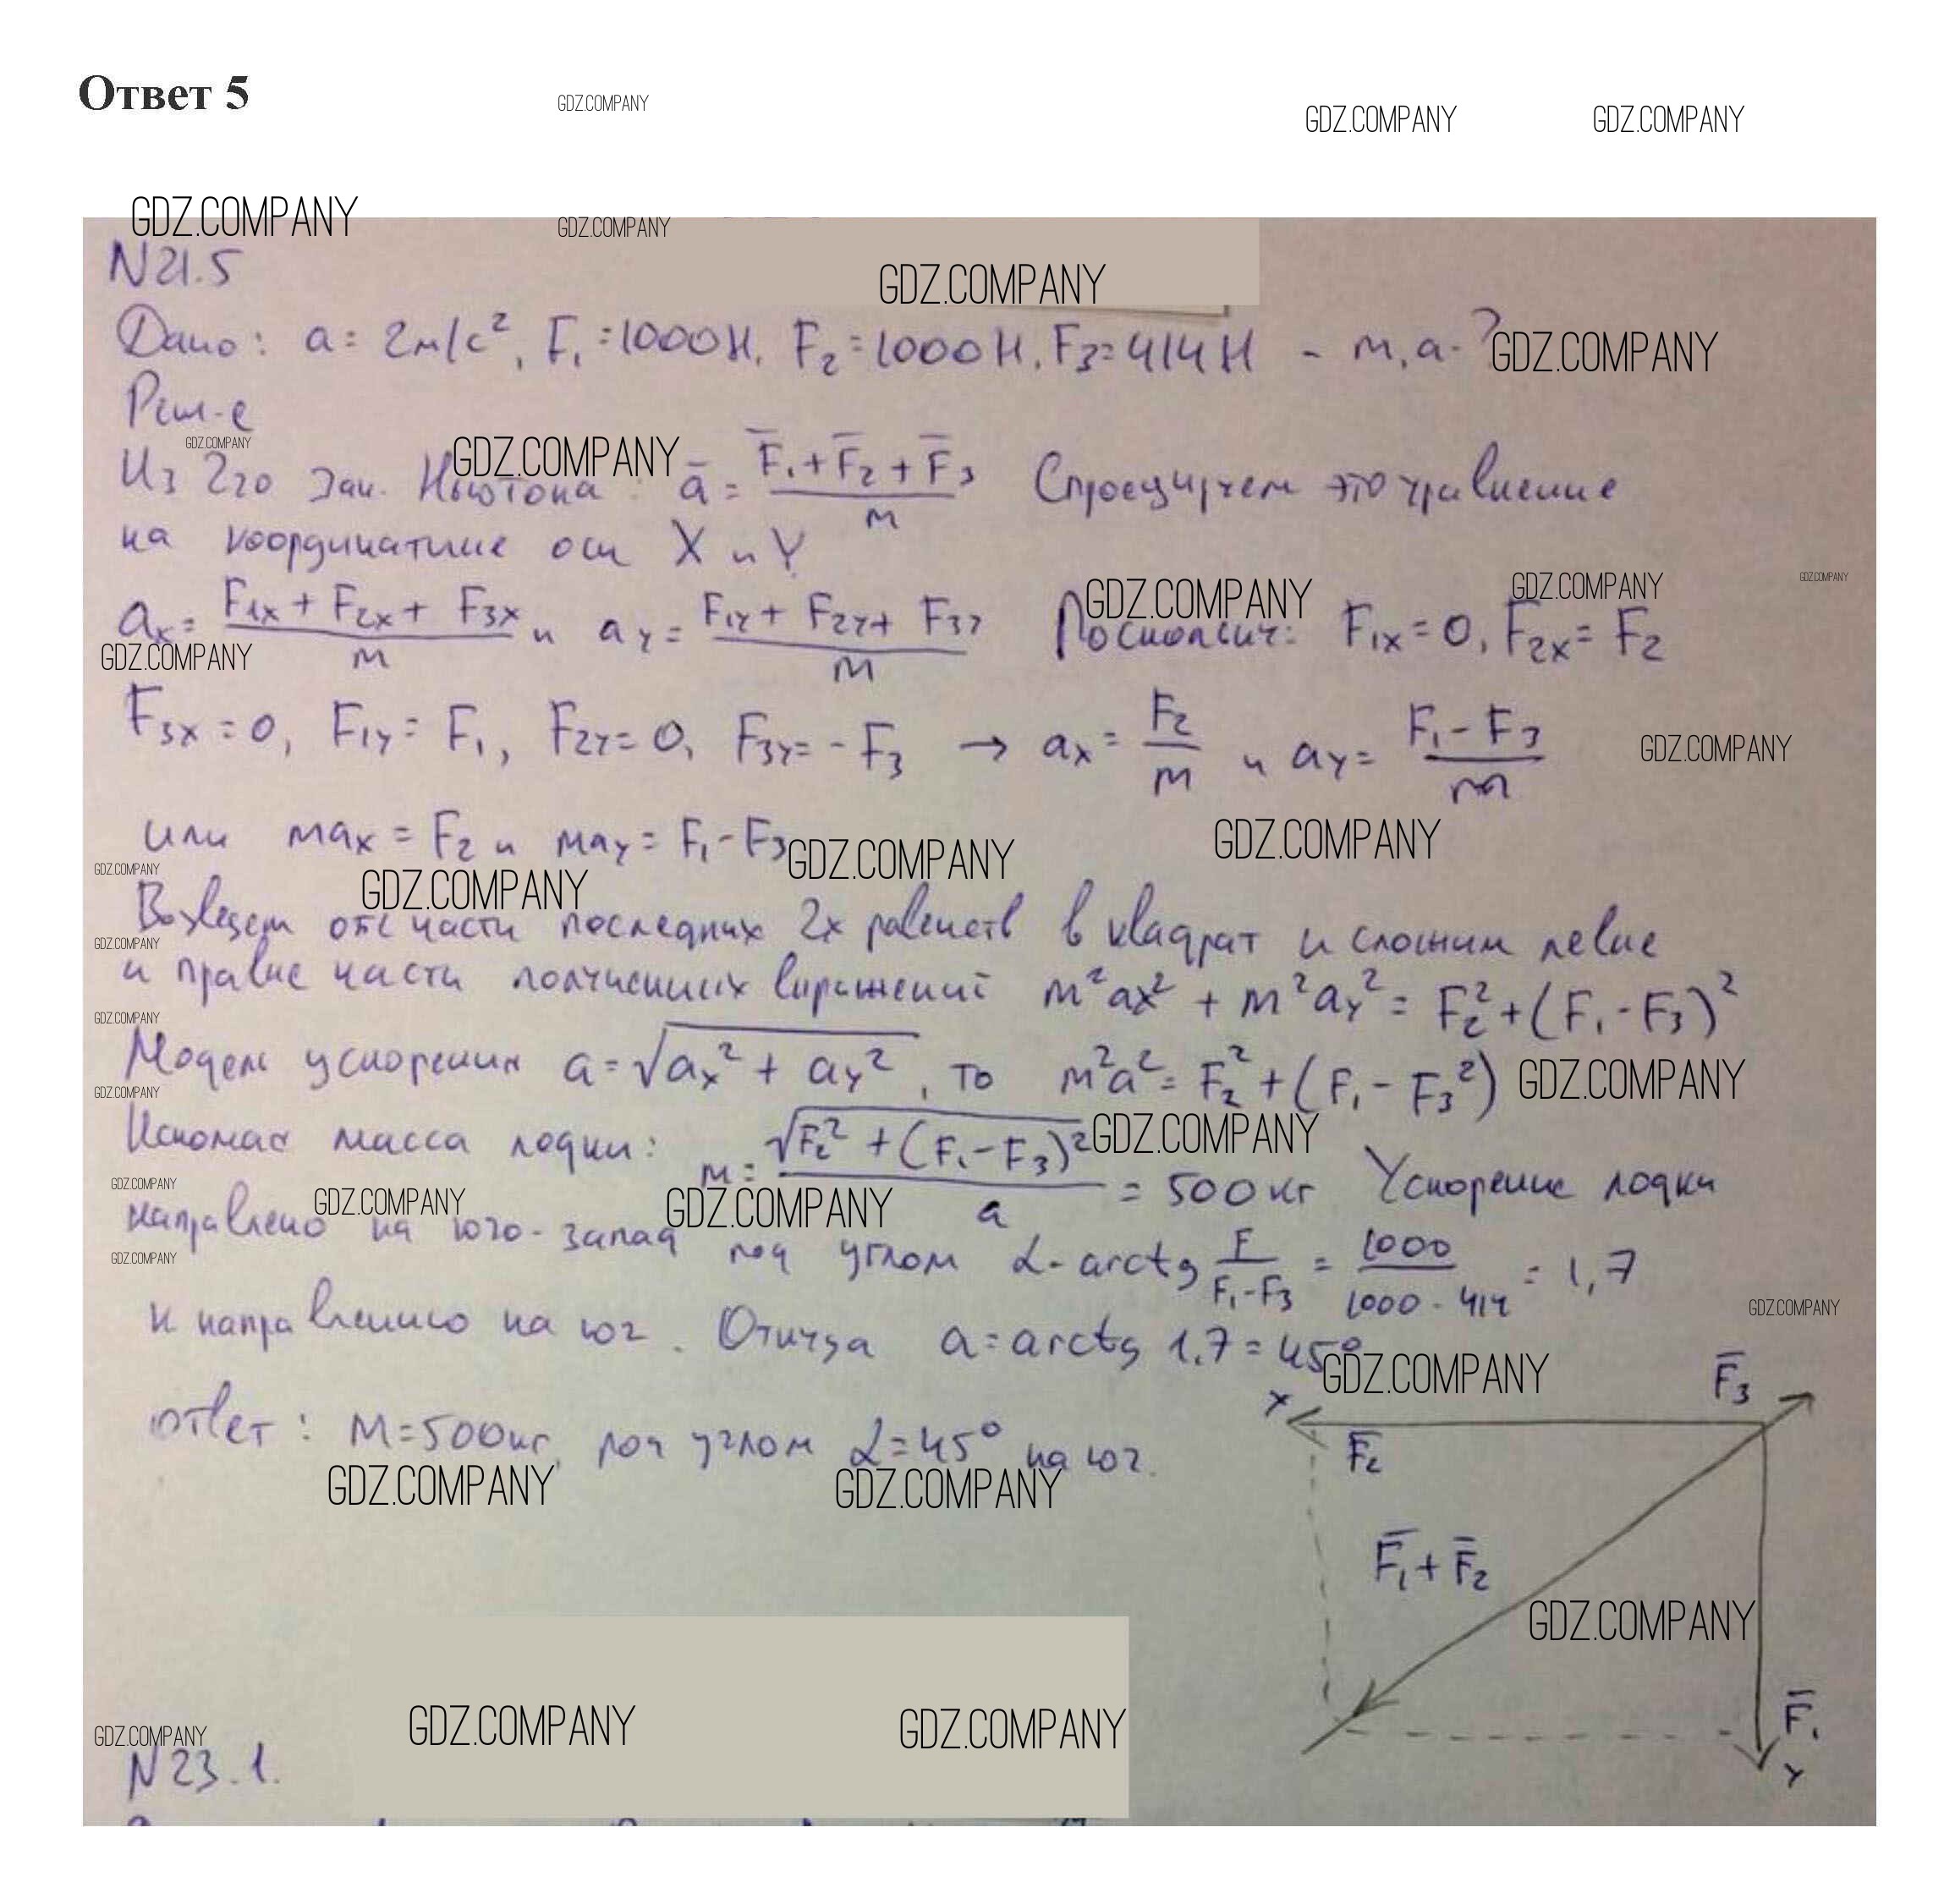 Ответ 5
GDZ.COMPANY
GDZ.COMPANY GDZ.COMPANY
GDZ.COMPANY GDZ.COMPANY
N21.5
GDZ.COMPANY
Дано: a = 2м/с², F₁ = 1000Н, F₂ = 1000Н, F₃ = 414Н - m, a - ?
GDZ.COMPANY
Реш-е
GDZ.COMPANY GDZ.COMPANY
Из 2го зак. Ньютона: a̅ = (F̅₁ + F̅₂ + F̅₃)/m Спроецируем это уравнение
на координатные оси X и Y
GDZ.COMPANY GDZ.COMPANY GDZ.COMPANY
aₓ = (F₁ₓ + F₂ₓ + F₃ₓ)/m и aᵧ = (F₁ᵧ + F₂ᵧ + F₃ᵧ)/m Поскольку: F₁ₓ = 0, F₂ₓ = F₂
GDZ.COMPANY
F₃ₓ = 0, F₁ᵧ = F₁, F₂ᵧ = 0, F₃ᵧ = - F₃ → aₓ = F₂/m и aᵧ = (F₁ - F₃)/m
GDZ.COMPANY
или maₓ = F₂ и maᵧ = F₁ - F₃
GDZ.COMPANY GDZ.COMPANY
GDZ.COMPANY GDZ.COMPANY
Возведем обе части последних 2х равенств в квадрат и сложим левые
GDZ.COMPANY
и правые части полученных выражений m²aₓ² + m²aᵧ² = F₂² + (F₁ - F₃)²
GDZ.COMPANY
Модель ускорения a = √(aₓ² + aᵧ²), то m²a² = F₂² + (F₁ - F₃²)
GDZ.COMPANY
GDZ.COMPANY
Искомая масса лодки: m = √(F₂² + (F₁ - F₃)²)/a = 500 кг Ускорение лодки
GDZ.COMPANY
GDZ.COMPANY GDZ.COMPANY GDZ.COMPANY
направлено на юго-запад под углом α - arctg F/(F₁ - F₃) = 1000/(1000 - 414) = 1,7
GDZ.COMPANY
GDZ.COMPANY
к направлению на юг. Откуда a = arctg 1,7 = 45°
GDZ.COMPANY
ответ: M = 500кг, под углом α = 45° на юг.
GDZ.COMPANY GDZ.COMPANY
X F̅₃
F̅₂
F̅₁ + F̅₂
GDZ.COMPANY
F̅₁
Y
GDZ.COMPANY GDZ.COMPANY GDZ.COMPANY
N23.1.